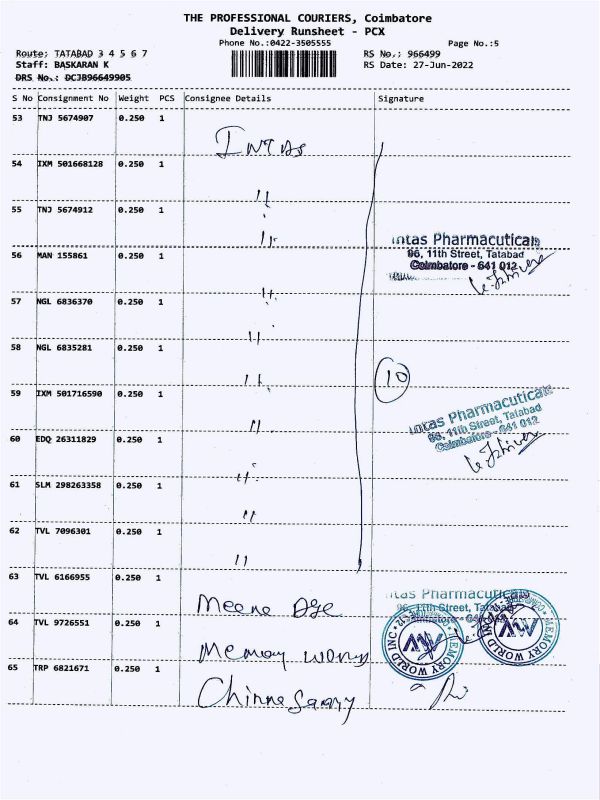 THE PROFESSIONAL COURIERS, Coimbatore
Delivery Runsheet - PCX
Phone No.:0422-3505555
Page No.:5
Route: TATABAD 3 4 5 6 7
RS No.: 966499
Staff: BASKARAN K
RS Date: 27-Jun-2022
DRS No.: DCJB96649905
S No Consignment No Weight PCS Consignee Details Signature
53 TNJ 5674907 0.250 1
Intas
54 IXM 501668128 0.250 1 "
55 TNJ 5674912 0.250 1 "
Intas Pharmacuticals
96, 11th Street, Tatabad
56 MAN 155861 0.250 1 "
Coimbatore - 641 012
57 NGL 6836370 0.250 1 "
58 NGL 6835281 0.250 1 "
10
59 IXM 501716590 0.250 1 "
Intas Pharmacuticals
96, 11th Street, Tatabad
Coimbatore - 641 012
60 EDQ 26311829 0.250 1 "
61 SLM 298263358 0.250 1 "
62 TVL 7096301 0.250 1 "
63 TVL 6166955 0.250 1
Meena
Intas Pharmacuticals
96, 11th Street, Tatabad
64 TVL 9726551 0.250 1
MEMORY WORLD INC
MEMORY WORLD INC
Memory World
65 TRP 6821671 0.250 1
Chinnasamy